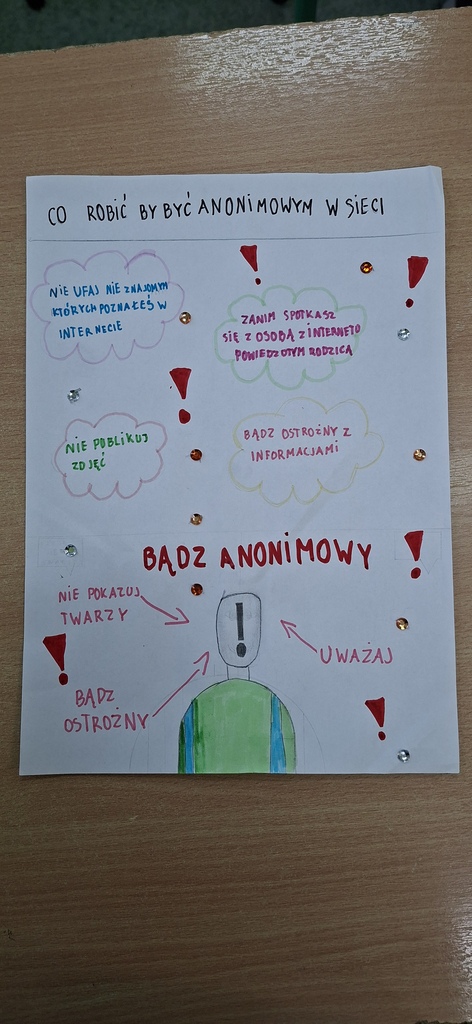 CO ROBIĆ BY BYĆ ANONIMOWYM W SIECI
NIE UFAJ NIE ZNAJOMYM
KTÓRYCH POZNAŁEŚ W
INTERNECIE
ZANIM SPOTKASZ
SIĘ Z OSOBĄ Z INTERNETO
POWIEDZOTYM RODZICĄ
NIE POBLIKUJ
ZDJĘĆ
BĄDZ OSTROŻNY Z
INFORMACJAMI
BĄDZ ANONIMOWY
NIE POKAZUJ
TWARZY
!
UWAŻAJ
BĄDZ
OSTROŻNY